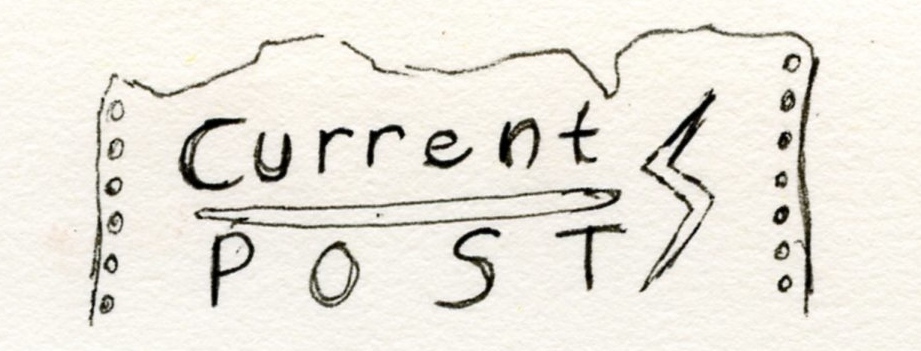 Current
POST